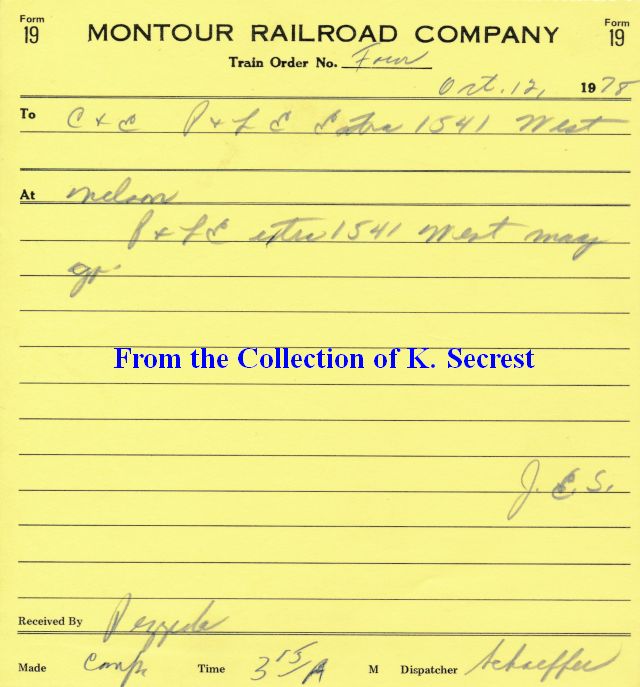 Form
19
MONTOUR RAILROAD COMPANY
Form
19
Train Order No. Four
Oct. 12, 1978
To C & E P & L E Extra 1541 West
At
P & L E extra 1541 West may
go.
From the Collection of K. Secrest
J. E. S.
Received By
Made Comp Time 3 15/A M Dispatcher Schaeffer